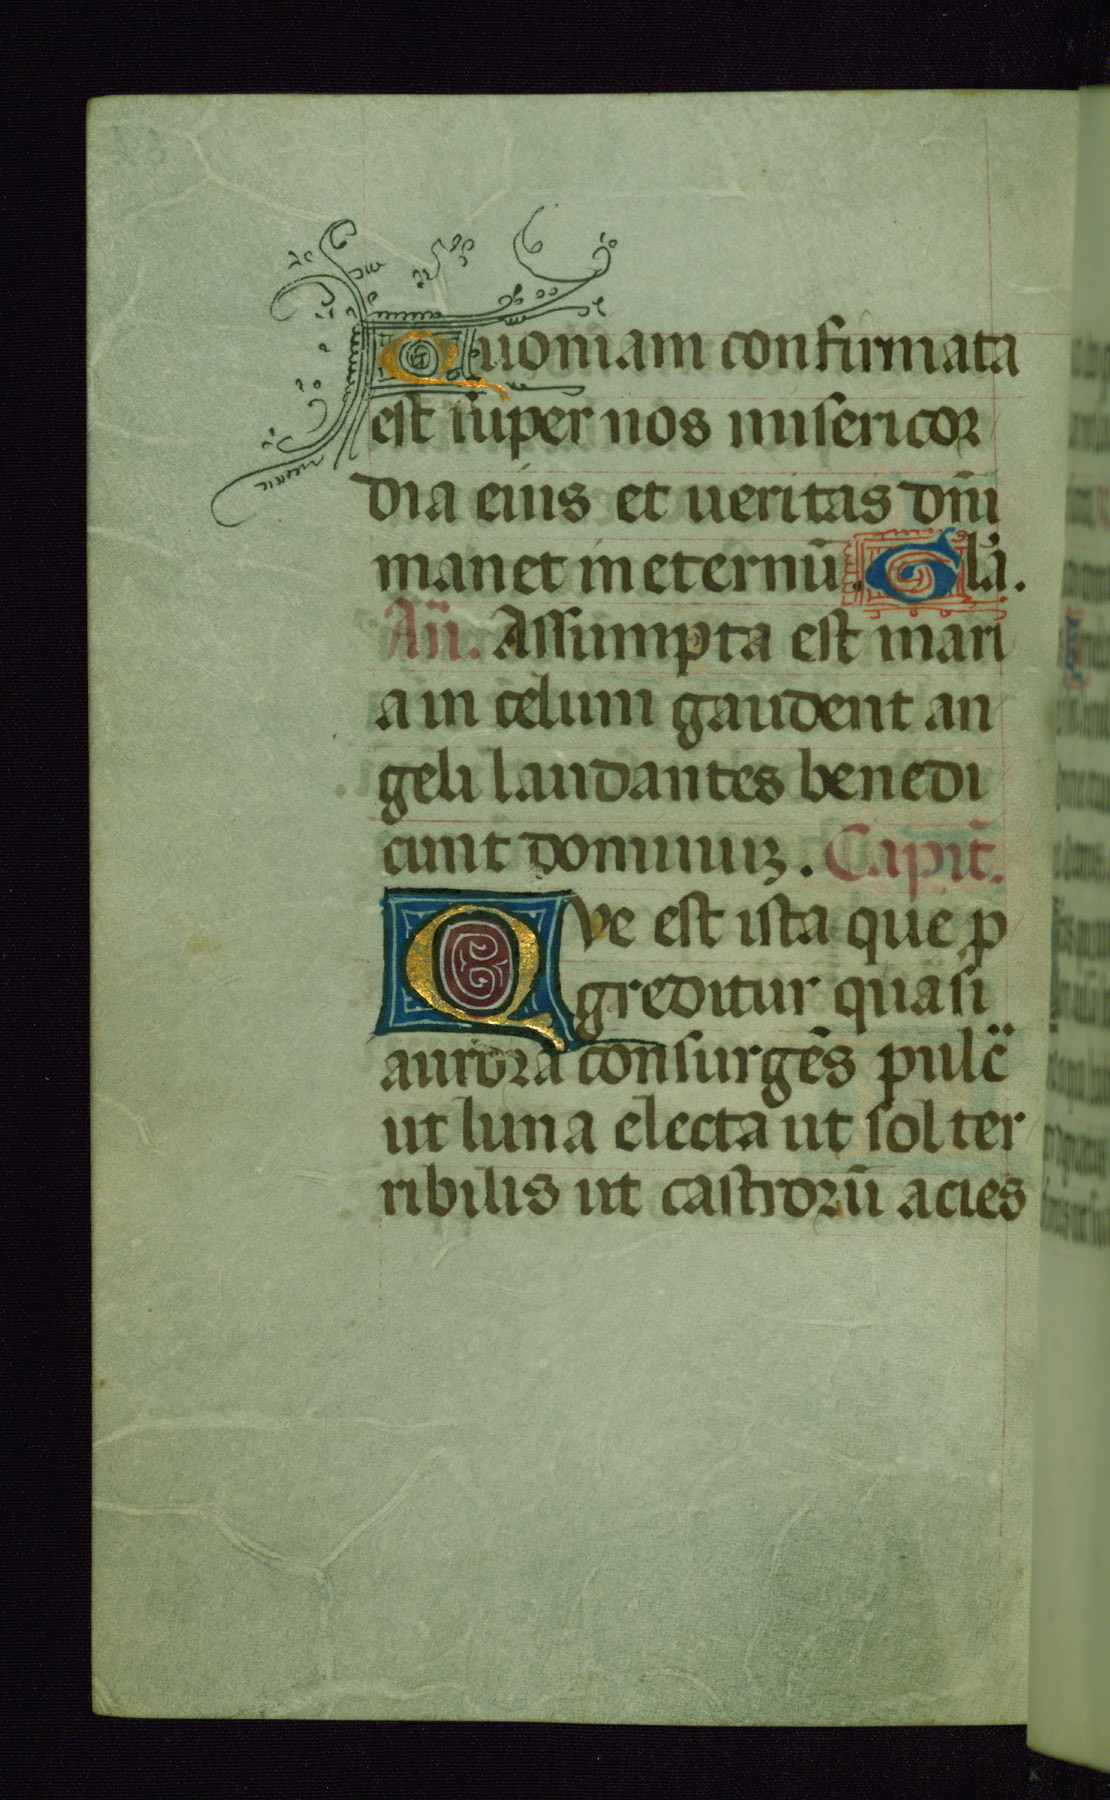 Quoniam confirmata
est super nos misericor
dia eius et ueritas dn̄i
manet in eternū. Gl̄a.
An̄. Assumpta est mari
a in celum gaudent an
geli laudantes benedi
cunt dominuz. Capit̄.
Qve est ista que p
greditur quasi
aurora consurgēs pulc̄
ut luna electa ut sol ter
ribilis ut castrorū acies